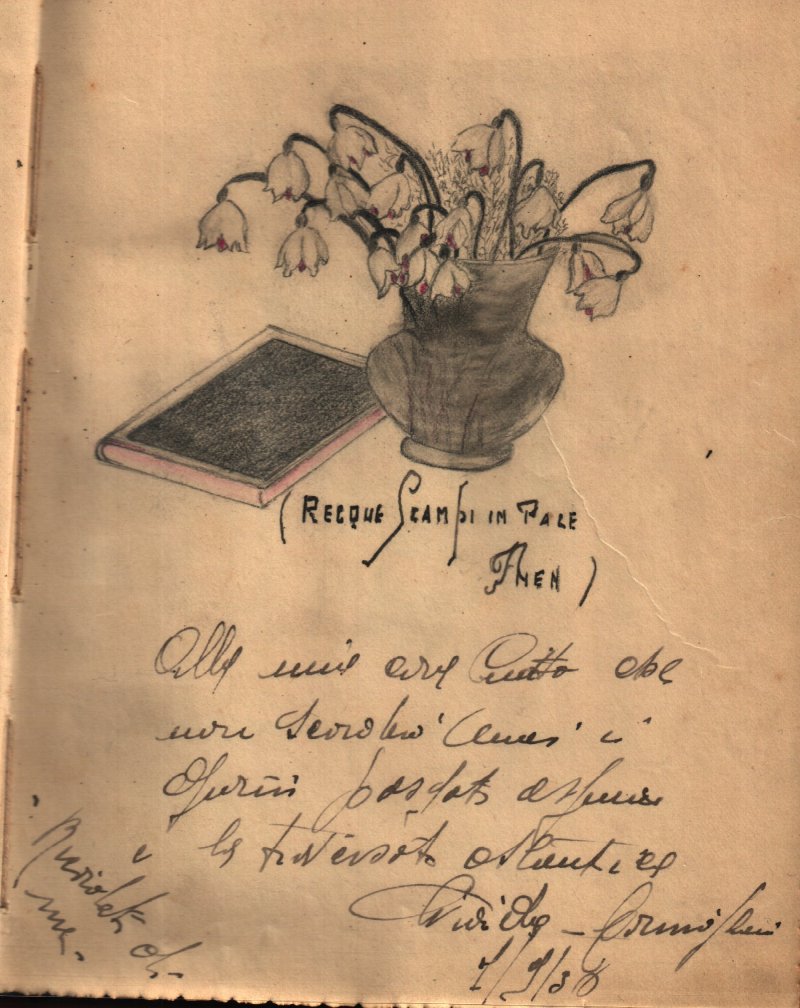 (RECQUE SCAMPI IN PACE
AMEN)
Alla mia cara che
non scorderò mai i
giorni passati assieme
e la traversata atlantica
7/9/38
Ricordati di
me.